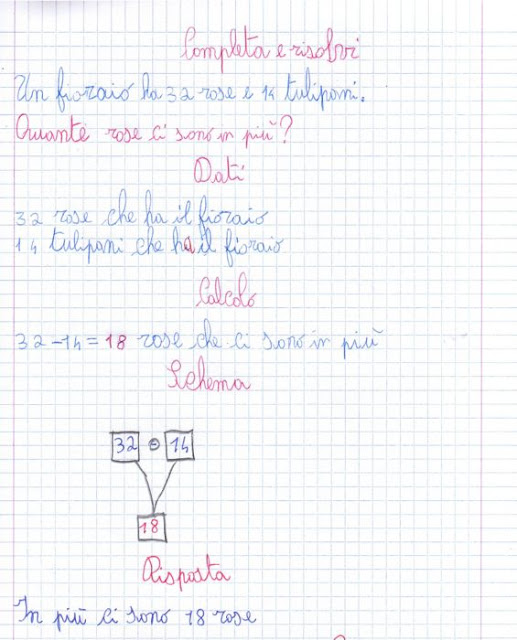 Completa e risolvi
Un fioraio ha 32 rose e 14 tulipani.
Quante rose ci sono in più?
Dati
32 rose che ha il fioraio
14 tulipani che ha il fioraio
Calcolo
32-14=18 rose che ci sono in più
Schema
32 - 14
18
Risposta
In più ci sono 18 rose